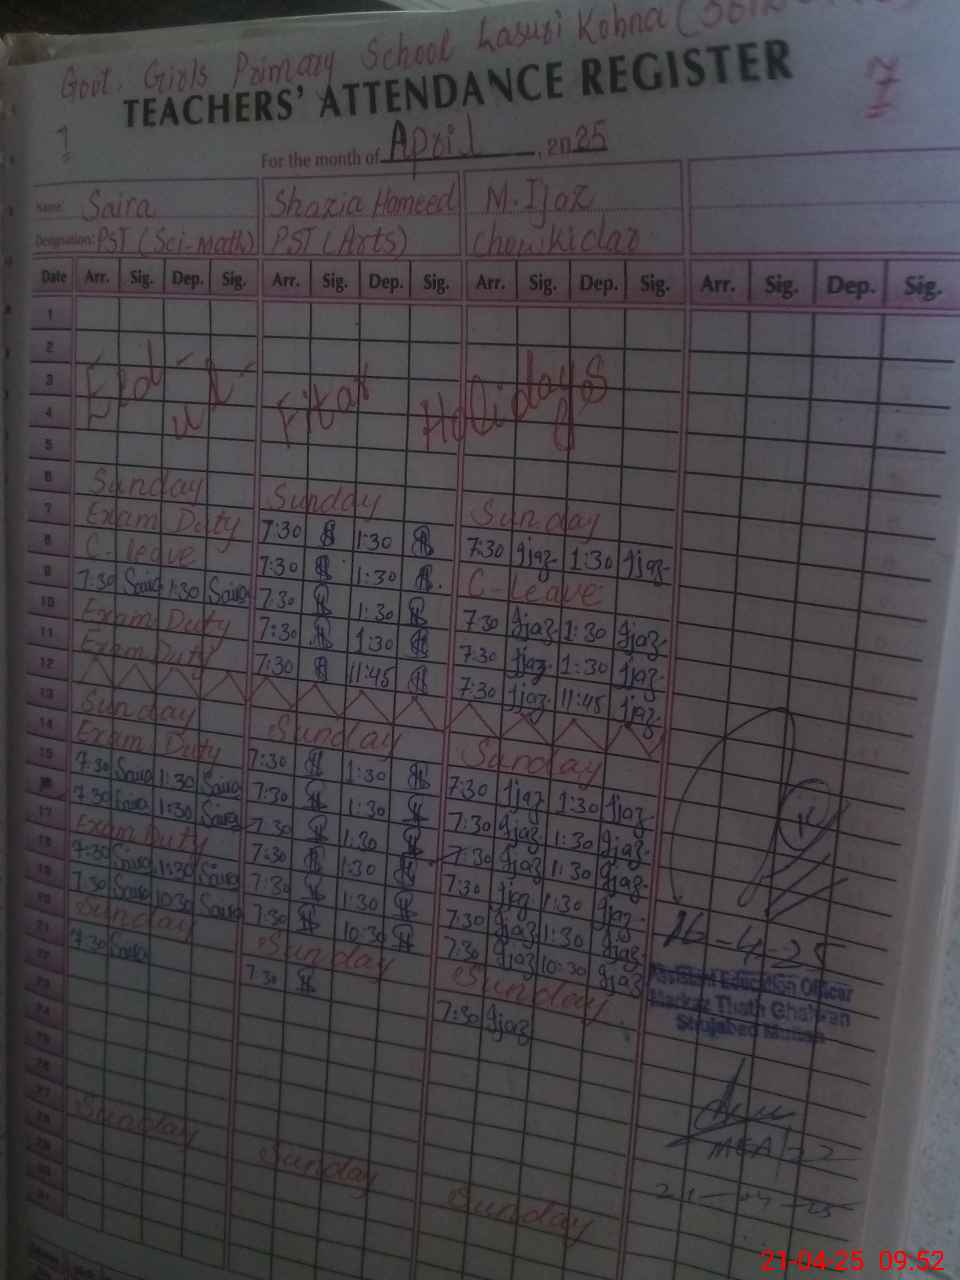 Govt. Girls Primary School Lasuri Kohna
TEACHERS' ATTENDANCE REGISTER
7
1
For the month of April, 2025
Name: Saira Shazia Hameed M. Ijaz
Designation: PST (Sci-Math) PST (Arts) Chowkidar
Date Arr. Sig. Dep. Sig. Arr. Sig. Dep. Sig. Arr. Sig. Dep. Sig. Arr. Sig. Dep. Sig.
1
2
3 Eid ul Fitar Holidays
4
5
6 Sunday Sunday Sunday
7 Exam Duty 7:30 1:30 7:30 Ijaz 1:30 Ijaz
8 C-leave 7:30 1:30 C-Leave
9 7:30 Saira 1:30 Saira 7:30 1:30 7:30 Ijaz 1:30 Ijaz
10 Exam Duty 7:30 1:30 7:30 Ijaz 1:30 Ijaz
11 Exam Duty 7:30 11:45 7:30 Ijaz 11:45 Ijaz
12
13 Sunday Sunday Sunday
14 Exam Duty 7:30 1:30 7:30 Ijaz 1:30 Ijaz
15 7:30 Saira 1:30 Saira 7:30 1:30 7:30 Ijaz 1:30 Ijaz
16 7:30 Saira 1:30 Saira 7:30 1:30 7:30 Ijaz 1:30 Ijaz
17 Exam Duty 7:30 1:30 7:30 Ijaz 1:30 Ijaz
18 7:30 Saira 1:30 Saira 7:30 1:30 7:30 Ijaz 1:30 Ijaz
19 7:30 Saira 10:30 Saira 7:30 10:30 7:30 Ijaz 10:30 Ijaz
20 Sunday Sunday Sunday
21 7:30 Saira 7:30 7:30 Ijaz
22
23
24
25
26
27 Sunday Sunday Sunday
28
29
30
31
16-4-25
Assistant Education Officer
Markaz Thath Ghalwan
Shujabad Multan
MEA
21-04-25
21-04-25 09.52